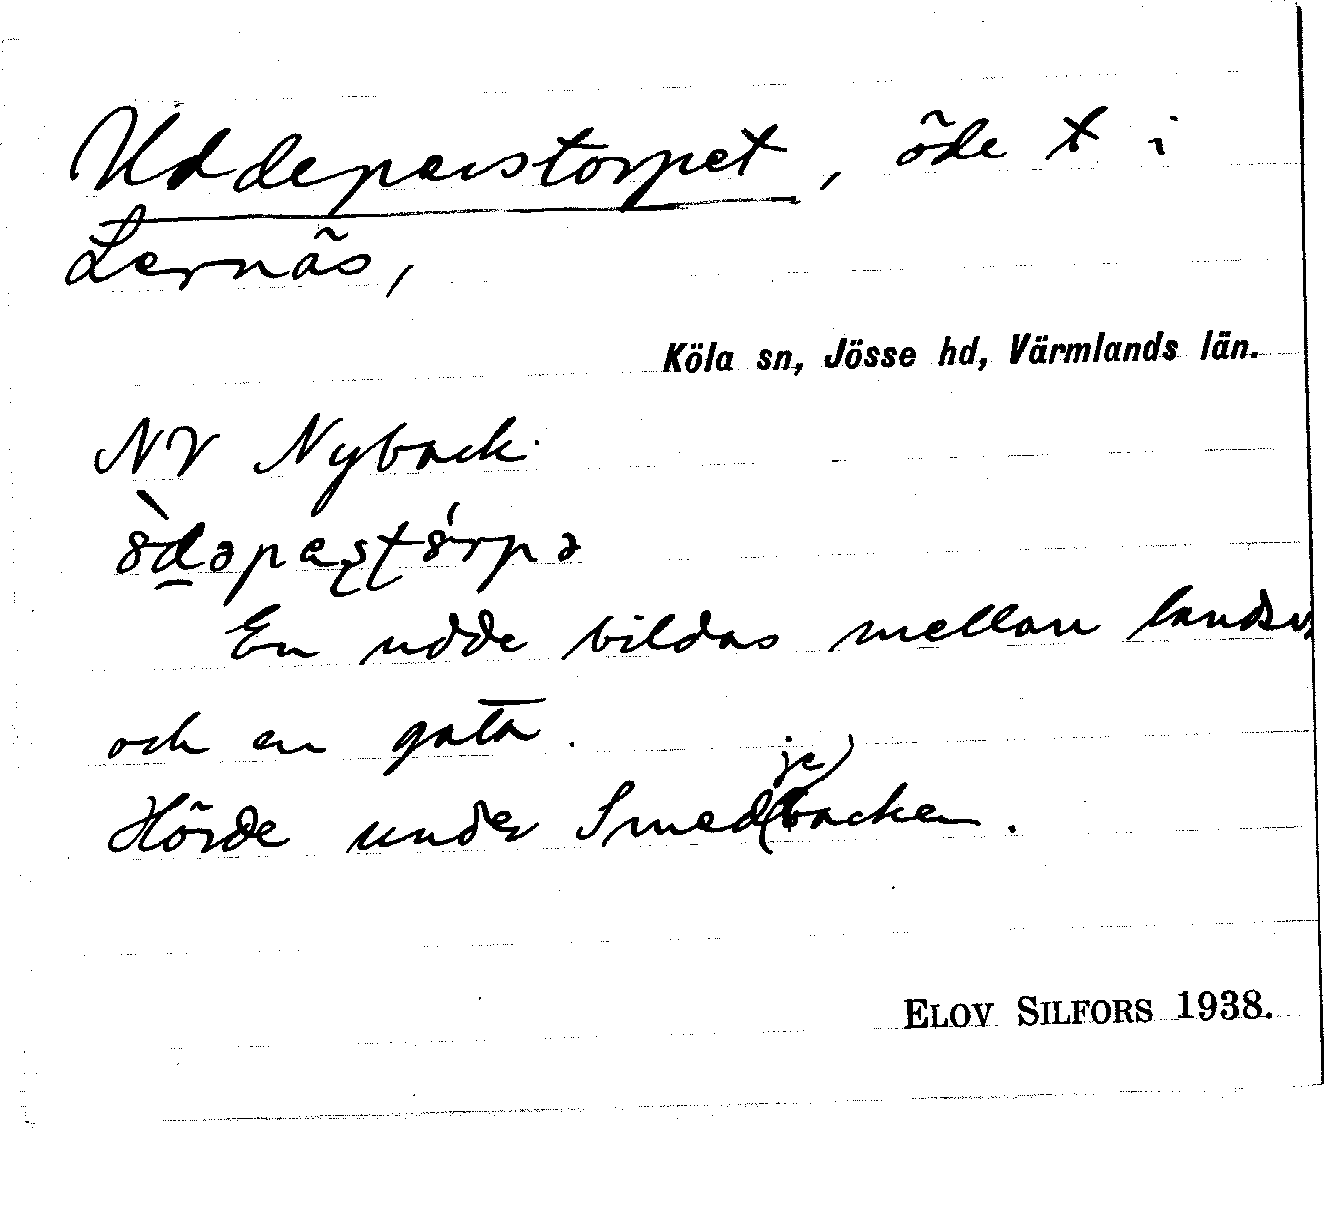 Uddeperstorpet, öde t i
Lernäs,
Köla sn, Jösse hd, Värmlands län.
NV Nyback.
En udde bildas mellan landsv.
och en gata.
Hörde under Smed(je)backen.
ELOV SILFORS 1938.